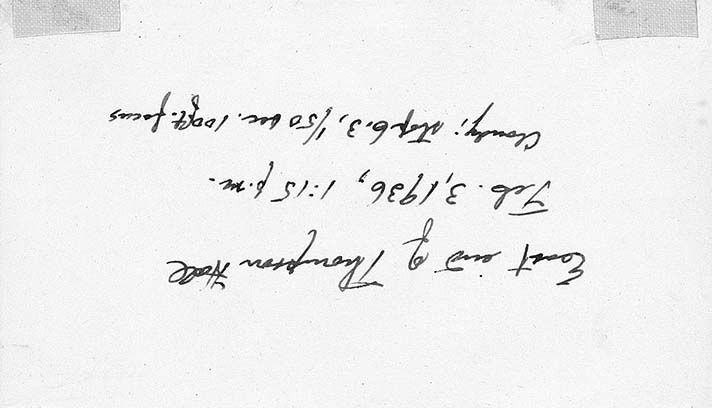 East end of Thompson Hall
Feb. 3, 1936, 1:15 p.m.
Cloudy; stop 6.3, 1/50 sec. 100ft. focus